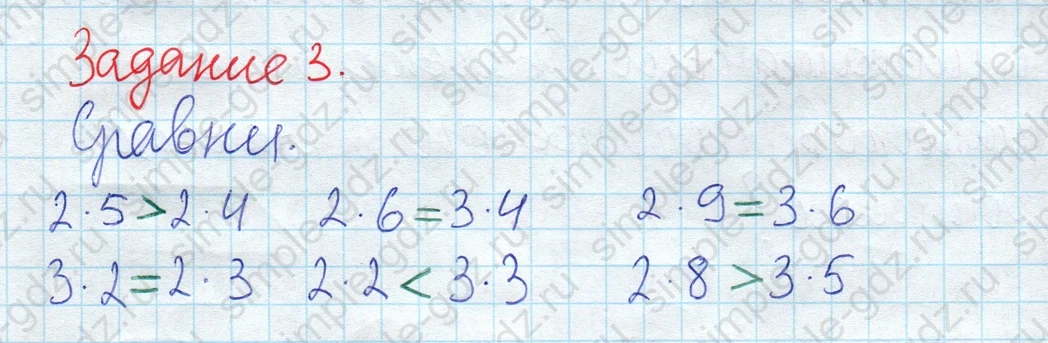 Задание 3.
Сравни.
2·5>2·4 2·6=3·4 2·9=3·6
3·2=2·3 2·2<3·3 2·8>3·5
simple-gdz.ru